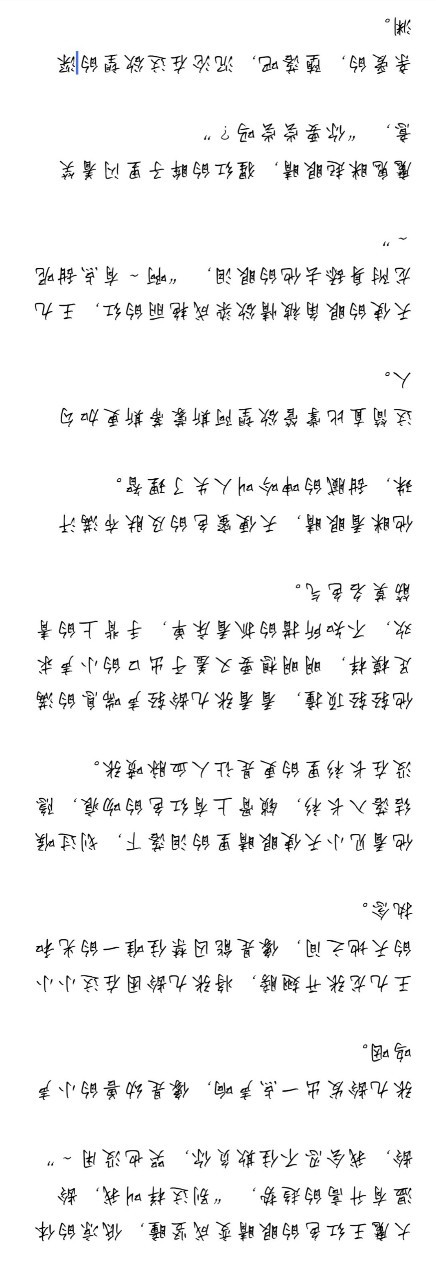 大魔王红色的眼睛变成竖瞳，低凉的体
温有升高的趋势，“别这样叫我，龄
龄，我会忍不住欺负你，哭也没用～”
张九龄发出一点声响，像是幼兽的小声
呜咽。
王九龙张开翅膀，将张九龄困在这小小
的天地之间，像是能囚禁住唯一的光和
执念。
他看见小天使眼睛里的泪落下，划过喉
结落入长衫，锁骨上有红色的吻痕，隐
没在长衫里的更是让人血脉喷张。
他轻轻顶撞，看着张九龄轻声喘息的满
足模样，明明想要又羞于出口的小声求
欢，不知所措的抓着床单，手背上的青
筋莫名色气。
他眯着眼睛，天使蜜色的皮肤布满汗
珠，甜腻的呻吟叫人失了理智。
这简直比掌管欲望阿斯蒙蒂斯更加勾
人。
天使的眼角被情欲染成艳丽的红，王九
龙附身舔去他的眼泪，“啊～有点甜呢
～”
魔鬼眯起眼睛，猩红的眸子里闪着笑
意，“你要尝尝吗？”
亲爱的，堕落吧，沉沦在这欲望的深
渊。